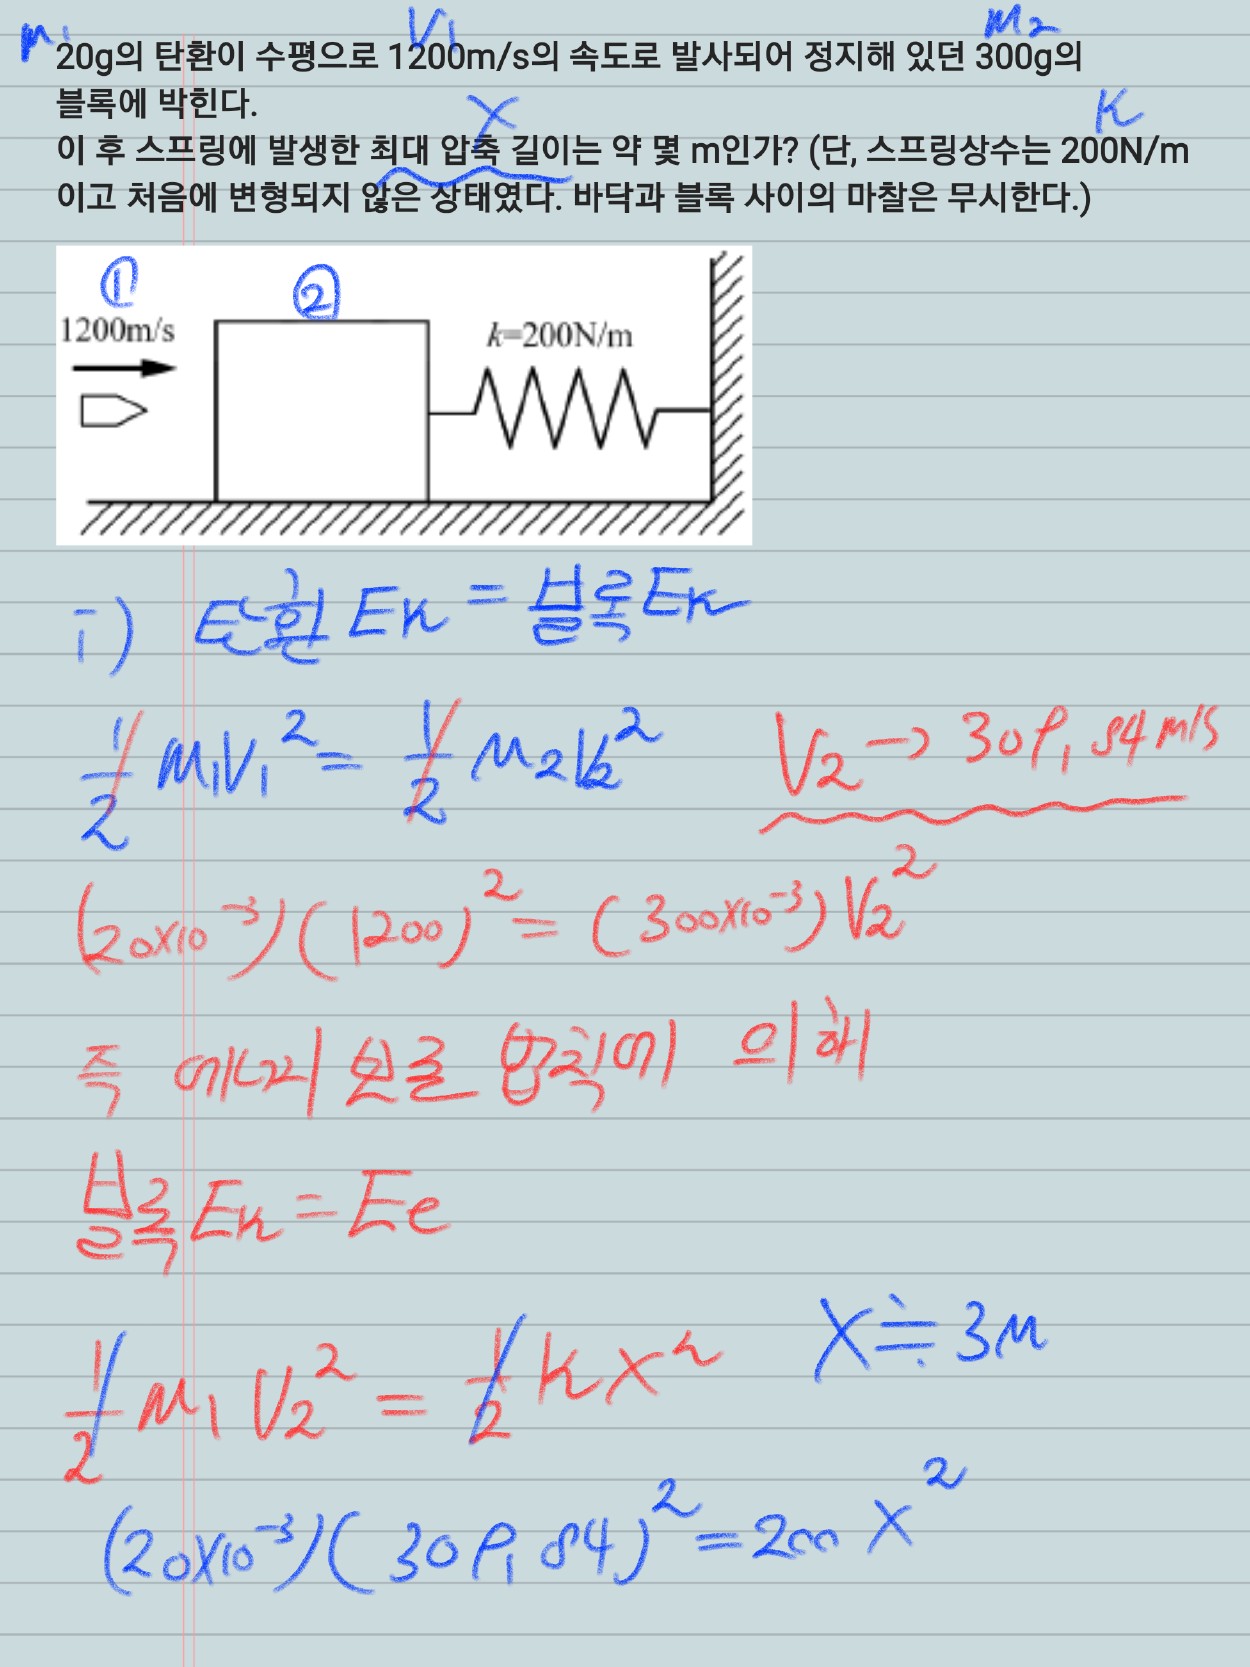 m1 V1 M2
20g의 탄환이 수평으로 1200m/s의 속도로 발사되어 정지해 있던 300g의
블록에 박힌다.
X K
이 후 스프링에 발생한 최대 압축 길이는 약 몇 m인가? (단, 스프링상수는 200N/m
이고 처음에 변형되지 않은 상태였다. 바닥과 블록 사이의 마찰은 무시한다.)
① ②
1200m/s k=200N/m
i) 탄환 Ek = 블록 Ek
1/2 M1V1² = 1/2 M2V2² V2 → 309,84 m/s
(20X10⁻³)(1200)² = (300X10⁻³)V2²
즉 에너지 보존 법칙에 의해
블록 Ek = Ee
1/2 M1 V2² = 1/2 k X² X ≒ 3M
(20X10⁻³)(309,84)² = 200 X²